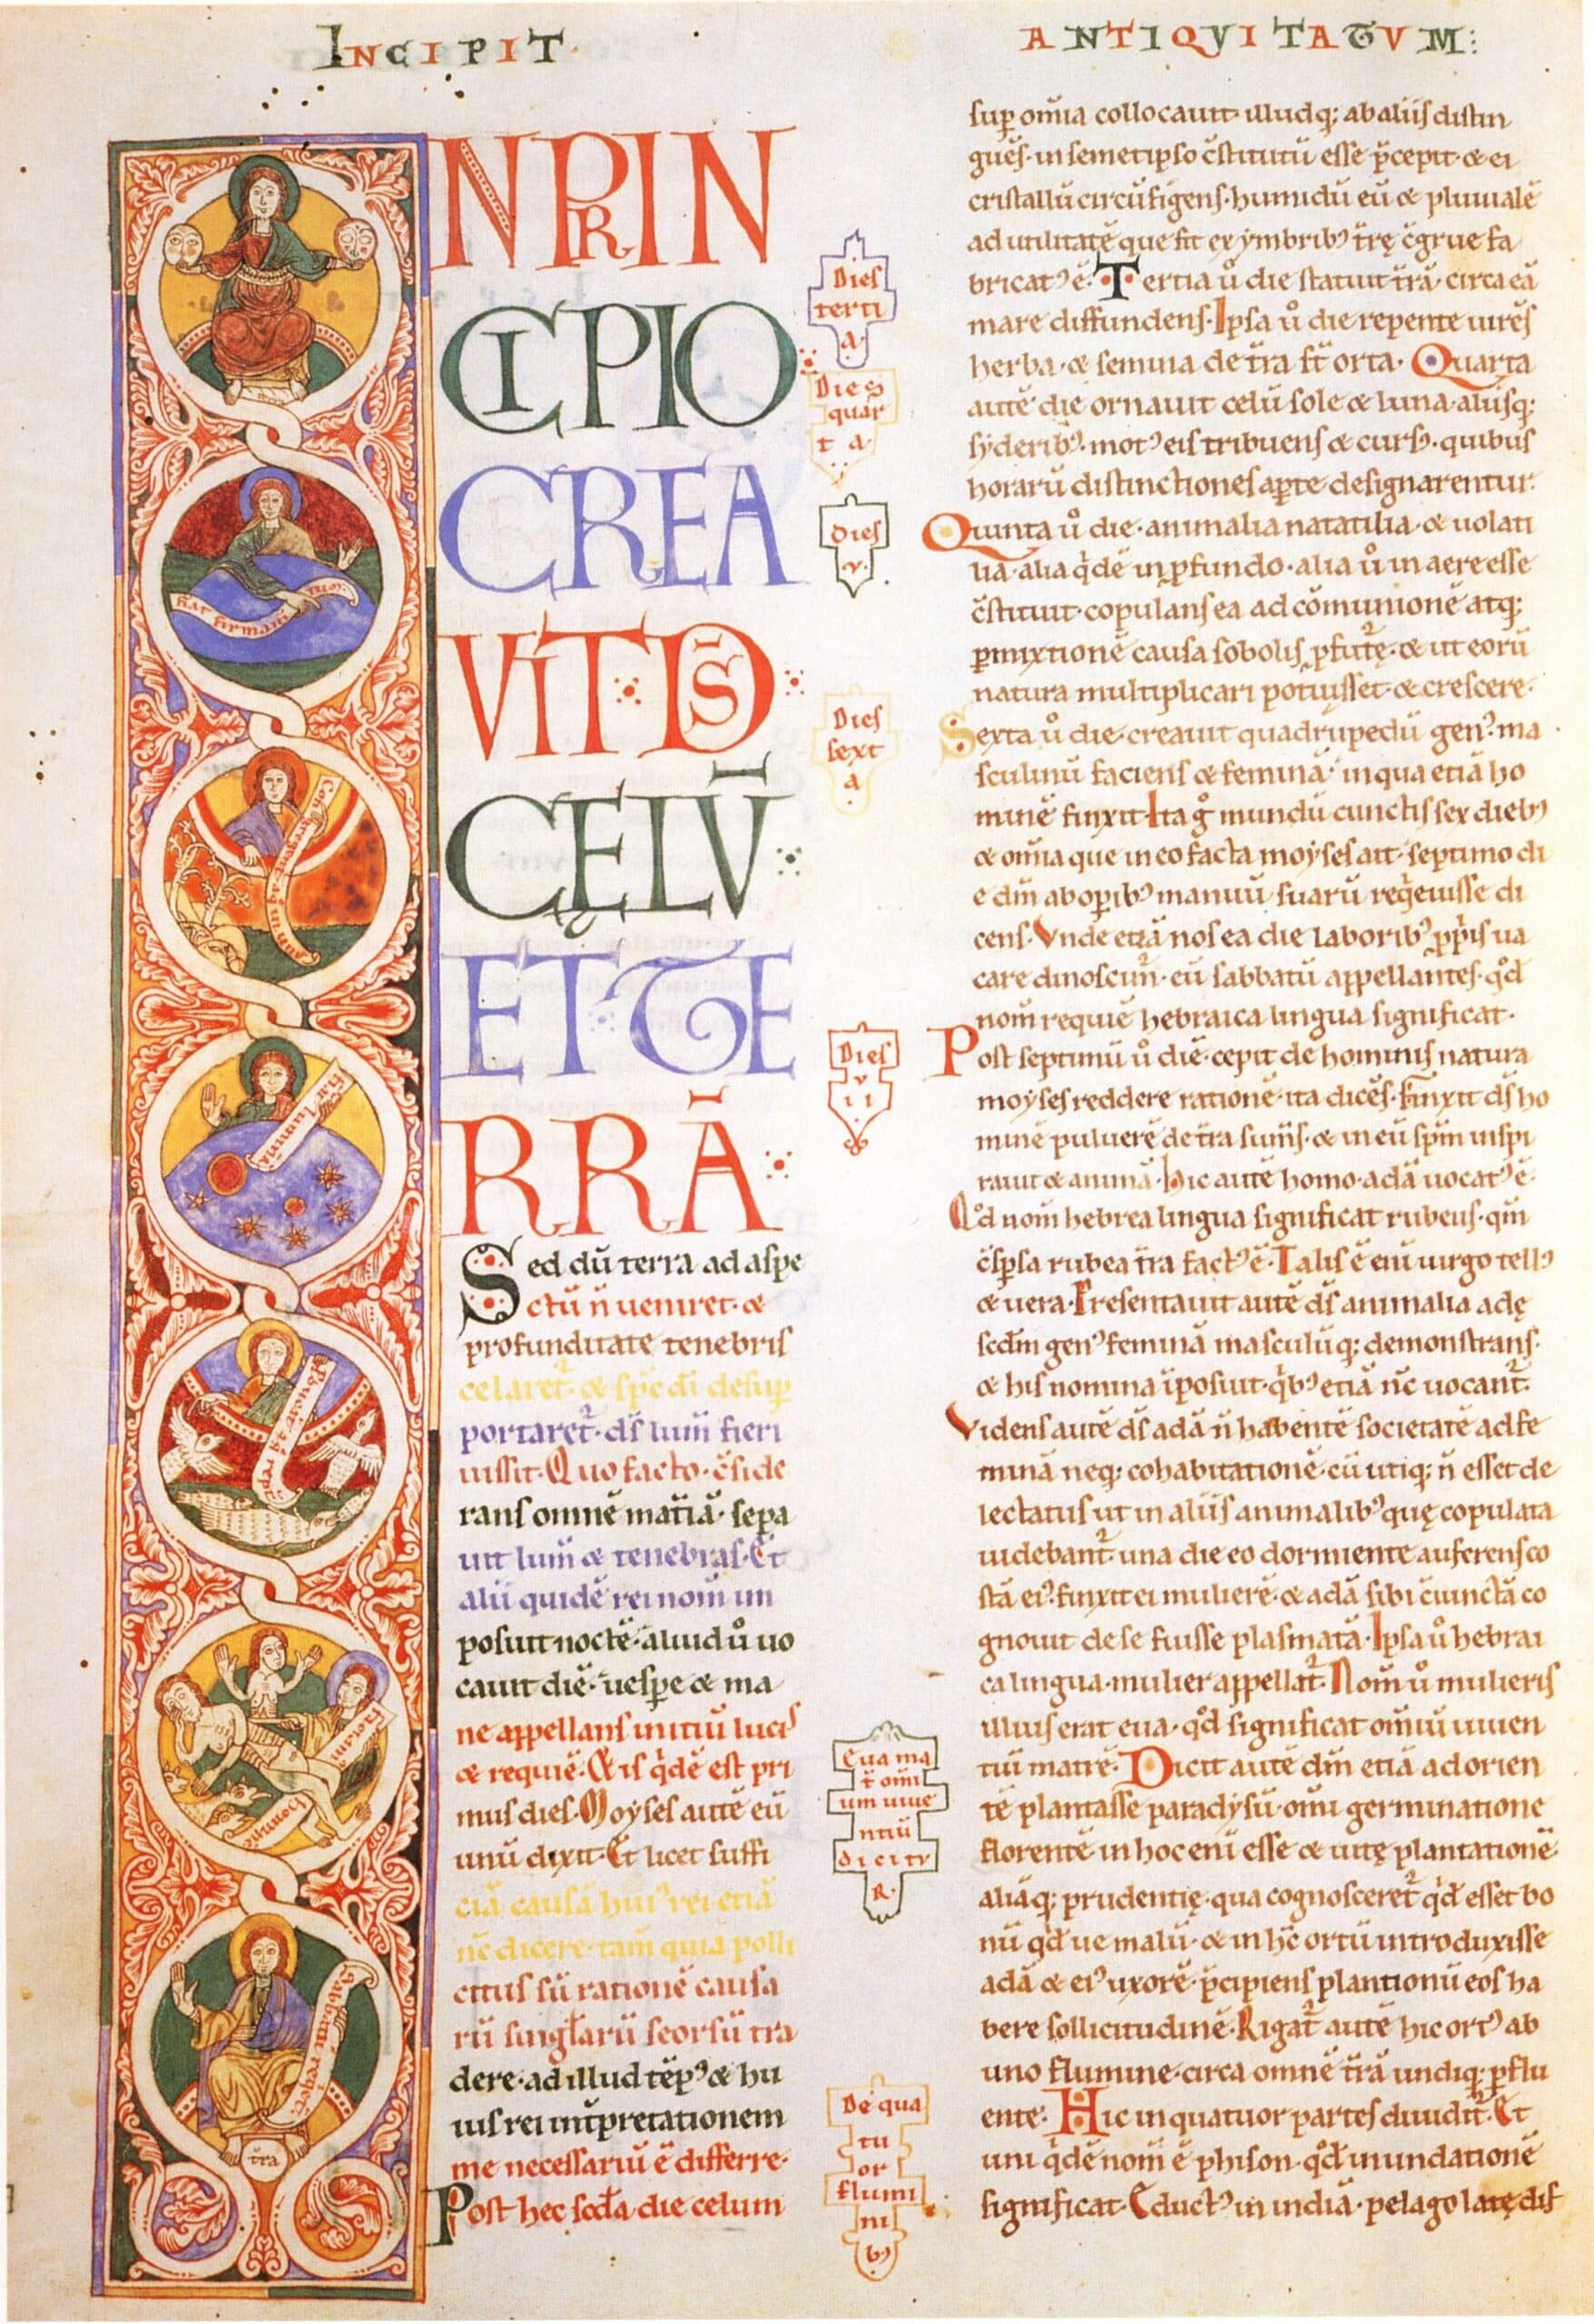 INCIPIT
ANTIQVITATVM:
IN PRIN
CIPIO
CREA
VIT DS̄
CELV̄
ET TE
RRĀ
Sed dū terra ad aspe
ctū n̄ ueniret· &
profunditate tenebris
celaret᷑· & sp̄c dī desup̱
portaret᷑· ds̄ lum̄ fieri
iussit· Quo facto· c̄side
rans omnē mat̄iā· sepa
uit lum̄ & tenebras· Et
alii quidē rei nom̄ im
posuit noctē· aliud ů uo
cauit diē· uesp̱e & ma
ne appellans initiū lucis
& requiē· Et is q̇dē est pri
mus dies· Moyses autē eū
unū dixit· Et licet suffi
ciā causā huiꝰ rei etiā
nc̄ dicere· tam̄ quia polli
citus sū rationē causa
rū singl̄arū seorsū tra
dere· ad illud tēpꝰ & hu
ius rei int̄pretationem
me necessariū ē differre·
Post hec sc̄da die celum
sup̱ om̄ia collocauit· illudq; ab aliis distin
guēs· in semetipso c̄stitutū esse p̄cepit· & ei
cristallū circūfigens· humidū eū & pluuialē
ad utilitatē que fit ex ymbribꝰ t̄rę c̄grue fa
bricatꝰ ē· Tertia ů die statuit t̄rā· circa eā
mare diffundens· Ipsa ů die repente uirēs
herba· & semina de t̄ra st̄ orta· Quarta
autē die ornauit celū sole & luna· aliisq;
syderibꝰ· motꝰ eis tribuens & cursꝰ· quibus
horarū distinctiones ap̱te designarentur·
Quinta ů die· animalia natatilia· & uolati
lia· alia q̇dē in p̱fundo· alia ů in aere esse
c̄stituit· copulans ea ad cōmunionē atq;
p̱mixtionē causa sobolis p̱futurę· & ut eorū
natura multiplicari potuisset· & crescere·
Sexta ů die· creauit quadrupedū genꝰ· ma
sculinū faciens & feminā· in qua etiā ho
minē finxit· Ita g̊ mundū cunctis sex diebꝰ
& om̄ia que in eo facta moyses ait· septimo di
e dm̄ ab op̱ibꝰ manuū suarū req̇euisse di
cens· Vnde etiā nos ea die laboribꝰ pp̱is ua
care dinoscim̄· eū sabbatū appellantes· qd̄
nom̄ requiē hebraica lingua significat·
Post septimū ů diē· cepit de hominis natura
moyses reddere rationē· ita dicēs· Finxit ds̄ ho
minē puluerē de t̄ra sum̄s· & in eū sp̄m inspi
rauit & animā· Hic autē homo· adā uocatꝰ ē·
Qd̄ nom̄ hebrea lingua significat rubeus· qm̄
c̄sp̱sa rubea t̄ra factꝰ ē· Talis ē enī uirgo tellꝰ
& uera· Presentauit autē ds̄ animalia adę
scd̄m genꝰ feminā masculūq; demonstrans·
& his nomina īposuit· q̇bꝰ etiā nc̄ uocant᷑·
Videns autē ds̄ adā n̄ habentē societatē ad fe
minā neq; cohabitationē· cū utiq; n̄ esset de
lectatus ut in aliis animalibꝰ quę copulata
uidebant᷑· una die eo dormiente auferens co
stā eiꝰ· finxit ei mulierē· & adā sibi c̄iunctā co
gnouit de se fuisse plasmatā· Ipsa ů hebrai
ca lingua· mulier appellat᷑· Nom̄ ů mulieris
illius erat eua· qd̄ significat om̄iū uiuen
tiū matrē· Dicit autē dm̄ etiā ad orien
tē plantasse paradysū· om̄i germinatione
florentē· in hoc enī esse & uitę plantationē·
aliāq; prudentię· qua cognosceret᷑ qd̄ esset bo
nū· qd̄ ue malū· & in hc̄ ortū introduxisse
adā & eiꝰ uxorē· p̄cipiens plantionū eos ha
bere sollicitudinē· Rigat᷑ autē hic ortꝰ ab
uno flumine· circa omnē t̄rā undiq; p̱flu
ente· Hic in quatuor partes diuidit᷑· Et
uni q̇dē nom̄ ē phison· qd̄ inundationē
significat· Eductꝰ in indiā· pelago latę dif
Dies
terti
a·
Dies
quar
t a·
Dies
v·
Dies
sext
a
Dies
v
ii
Eua ma
t̄ om̄i
um uiue
ntiū
dicitr
R·
De qua
tu
or
flumi
ni
bꝰ
fiat firmam̄tum·
Congregent᷑ aq̄ in unū
fiat luminaria
Producāt aq̄ reptil
faciam᷒
hominē
Sabbatū requiei·
t̄ra